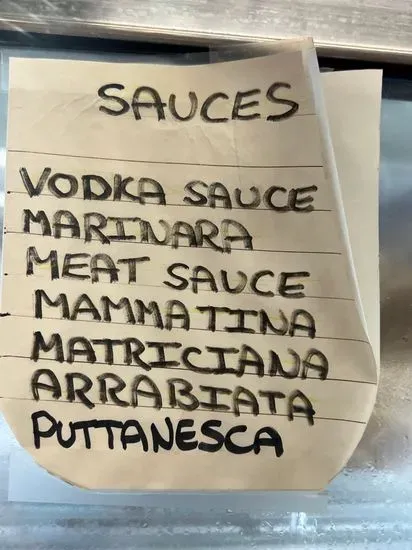 SAUCES
VODKA SAUCE
MARINARA
MEAT SAUCE
MAMMATINA
MATRICIANA
ARRABIATA
PUTTANESCA